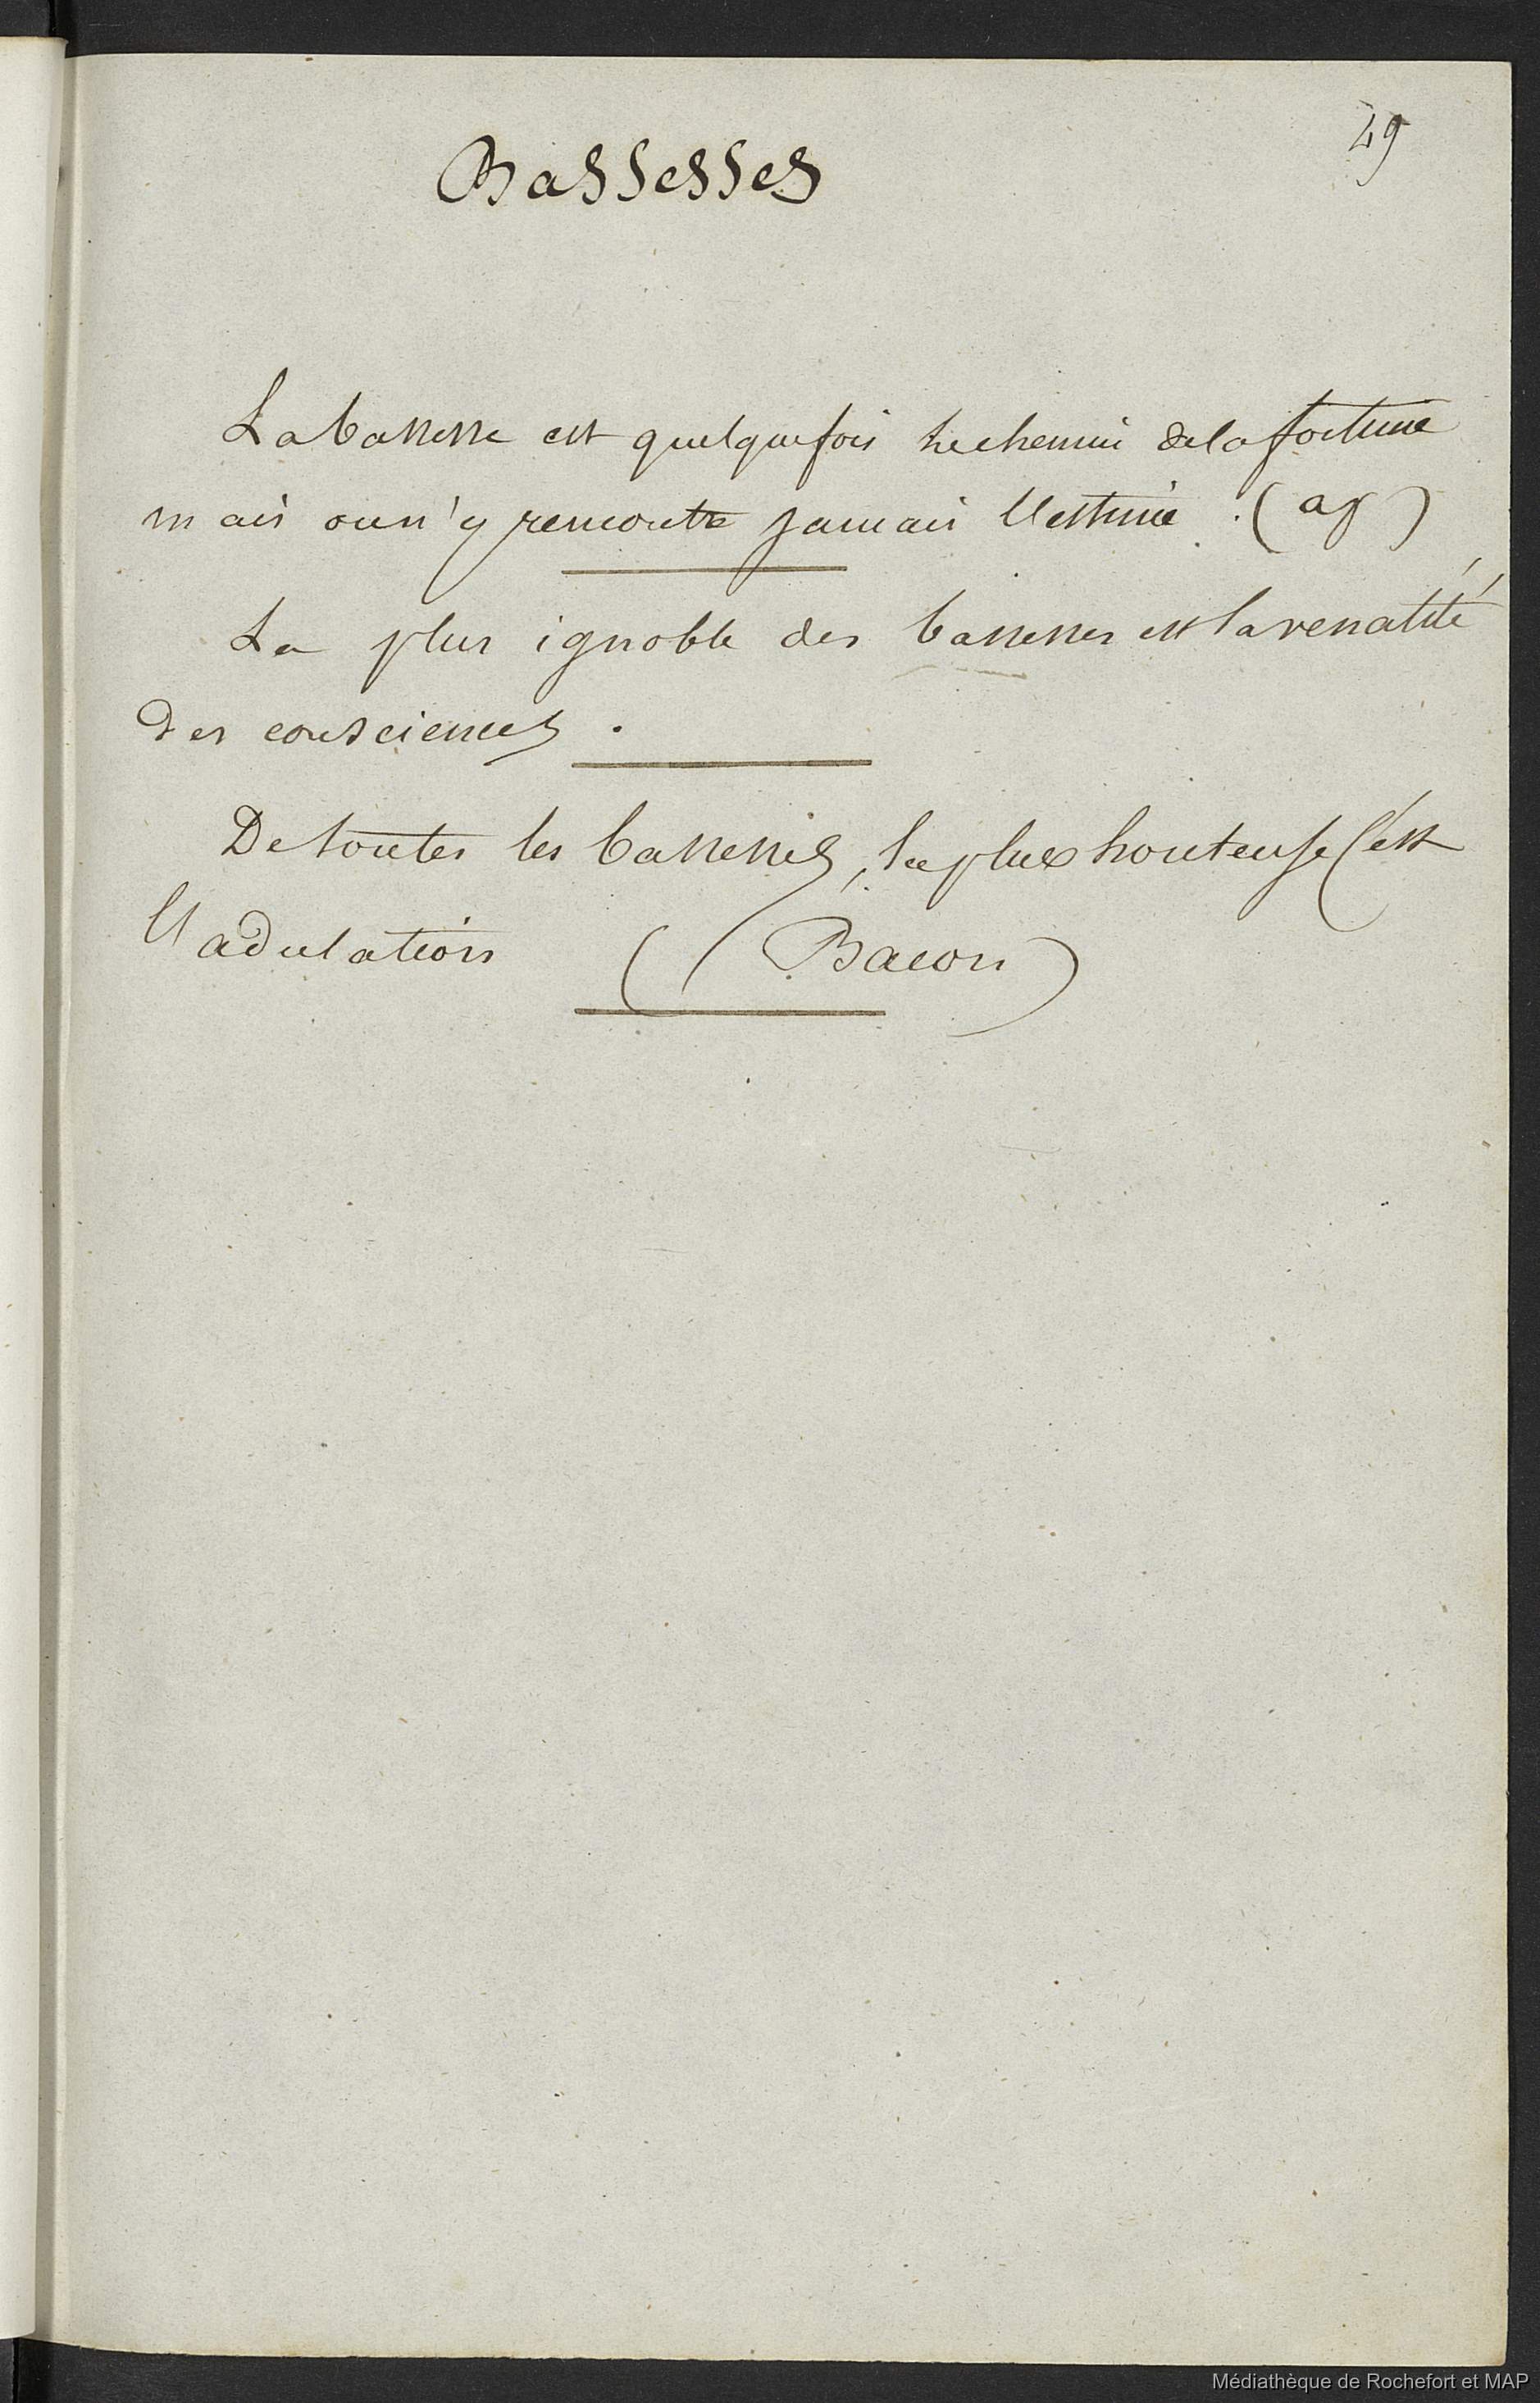 49
Bassesses
La bassesse est quelquefois le chemin de la fortune
mais on n'y rencontre jamais l'estime. (ag)
La plus ignoble des bassesses est la vénalité
des consciences.
De toutes les bassesses, la plus honteuse c'est
l'adulation (Bacon)
Médiathèque de Rochefort et MAP